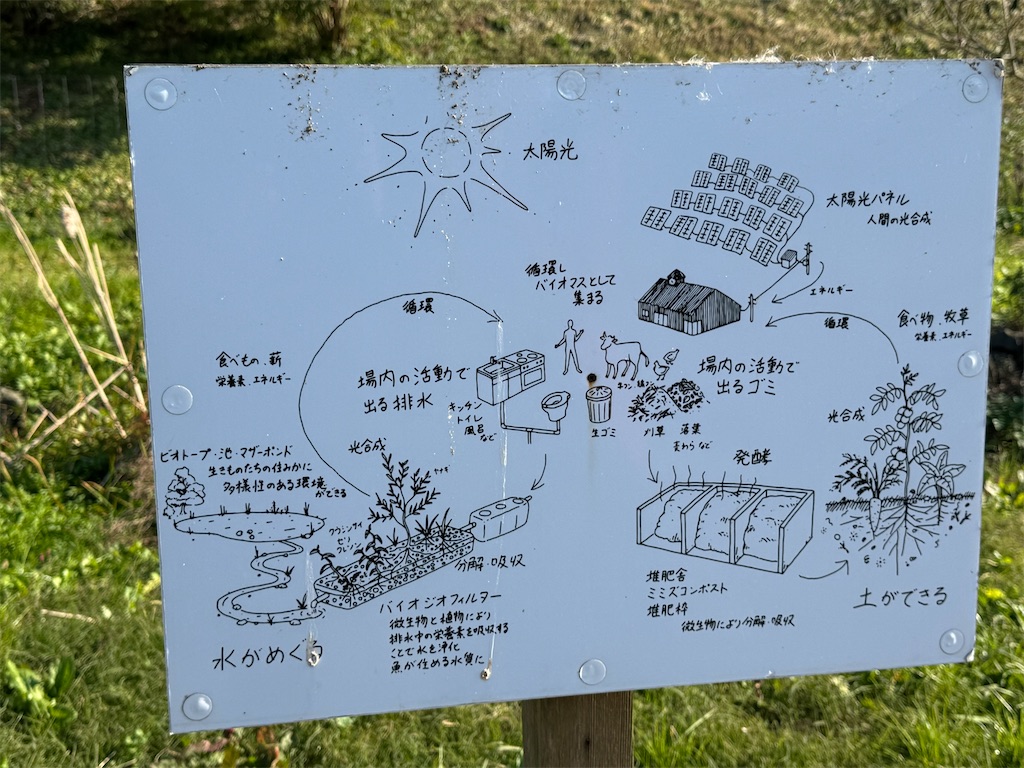 太陽光
太陽光パネル
人間の光合成
エネルギー
循環し
バイオマスとして
集まる
循環
循環
食べ物、牧草
栄養素、エネルギー
食べもの、薪
栄養素、エネルギー
場内の活動で
出る排水
キッチン
トイレ
風呂
など
場内の活動で
出るゴミ
生ゴミ
刈草
落葉
麦わら など
光合成
光合成
ヤナギ
発酵
ビオトープ・池・マザーポンド
生きものたちの住みかに
多様性のある環境
ができる
クウシンサイ
セリ
クレソン
分解・吸収
バイオジオフィルター
微生物と植物により
排水中の栄養素を吸収する
ことで水を浄化
魚が住める水質に
水がめぐる
堆肥舎
ミミズコンポスト
堆肥枠
微生物により分解・吸収
土ができる